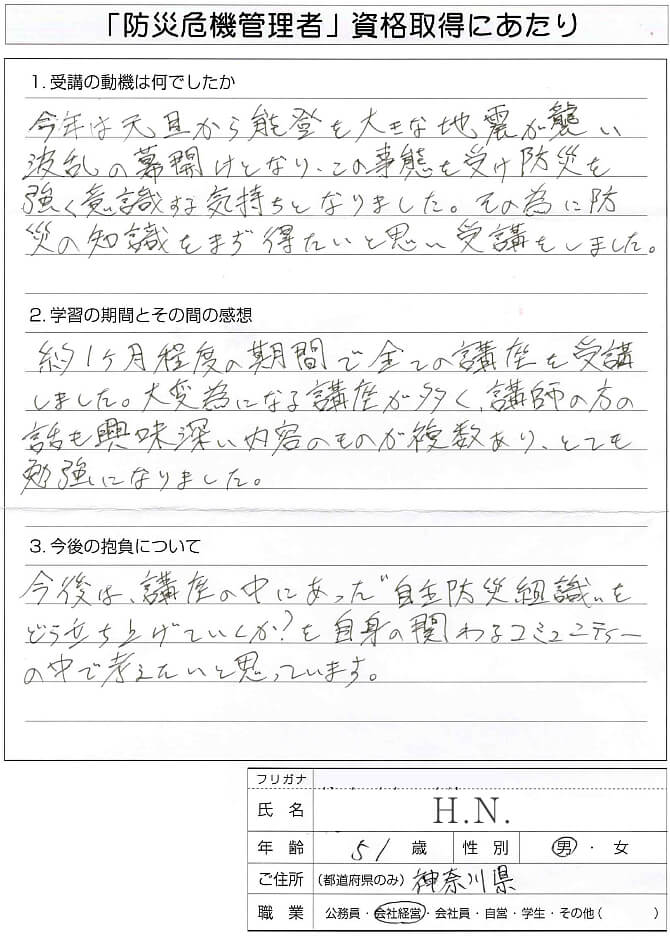 「防災危機管理者」資格取得にあたり
1. 受講の動機は何でしたか
今年は元旦から能登を大きな地震が襲い
波乱の幕開けとなり、この事態を受け防災を
強く意識する気持ちとなりました。その為に防
災の知識をまず得たいと思い受講をしました。
2. 学習の期間とその間の感想
約1ヶ月程度の期間で全ての講座を受講
しました。大変為になる講座が多く、講師の方の
話も興味深い内容のものが複数あり、とても
勉強になりました。
3. 今後の抱負について
今後は、講座の中にあった"自主防災組識"を
どう立ち上げていくか?を自身の関わるコミュニティー
の中で考えたいと思っています。
フリガナ
氏 名 H.N.
年 齢 51 歳 性 別 男 ・ 女
ご住所 (都道府県のみ) 神奈川県
職 業 公務員・会社経営・会社員・自営・学生・その他( )